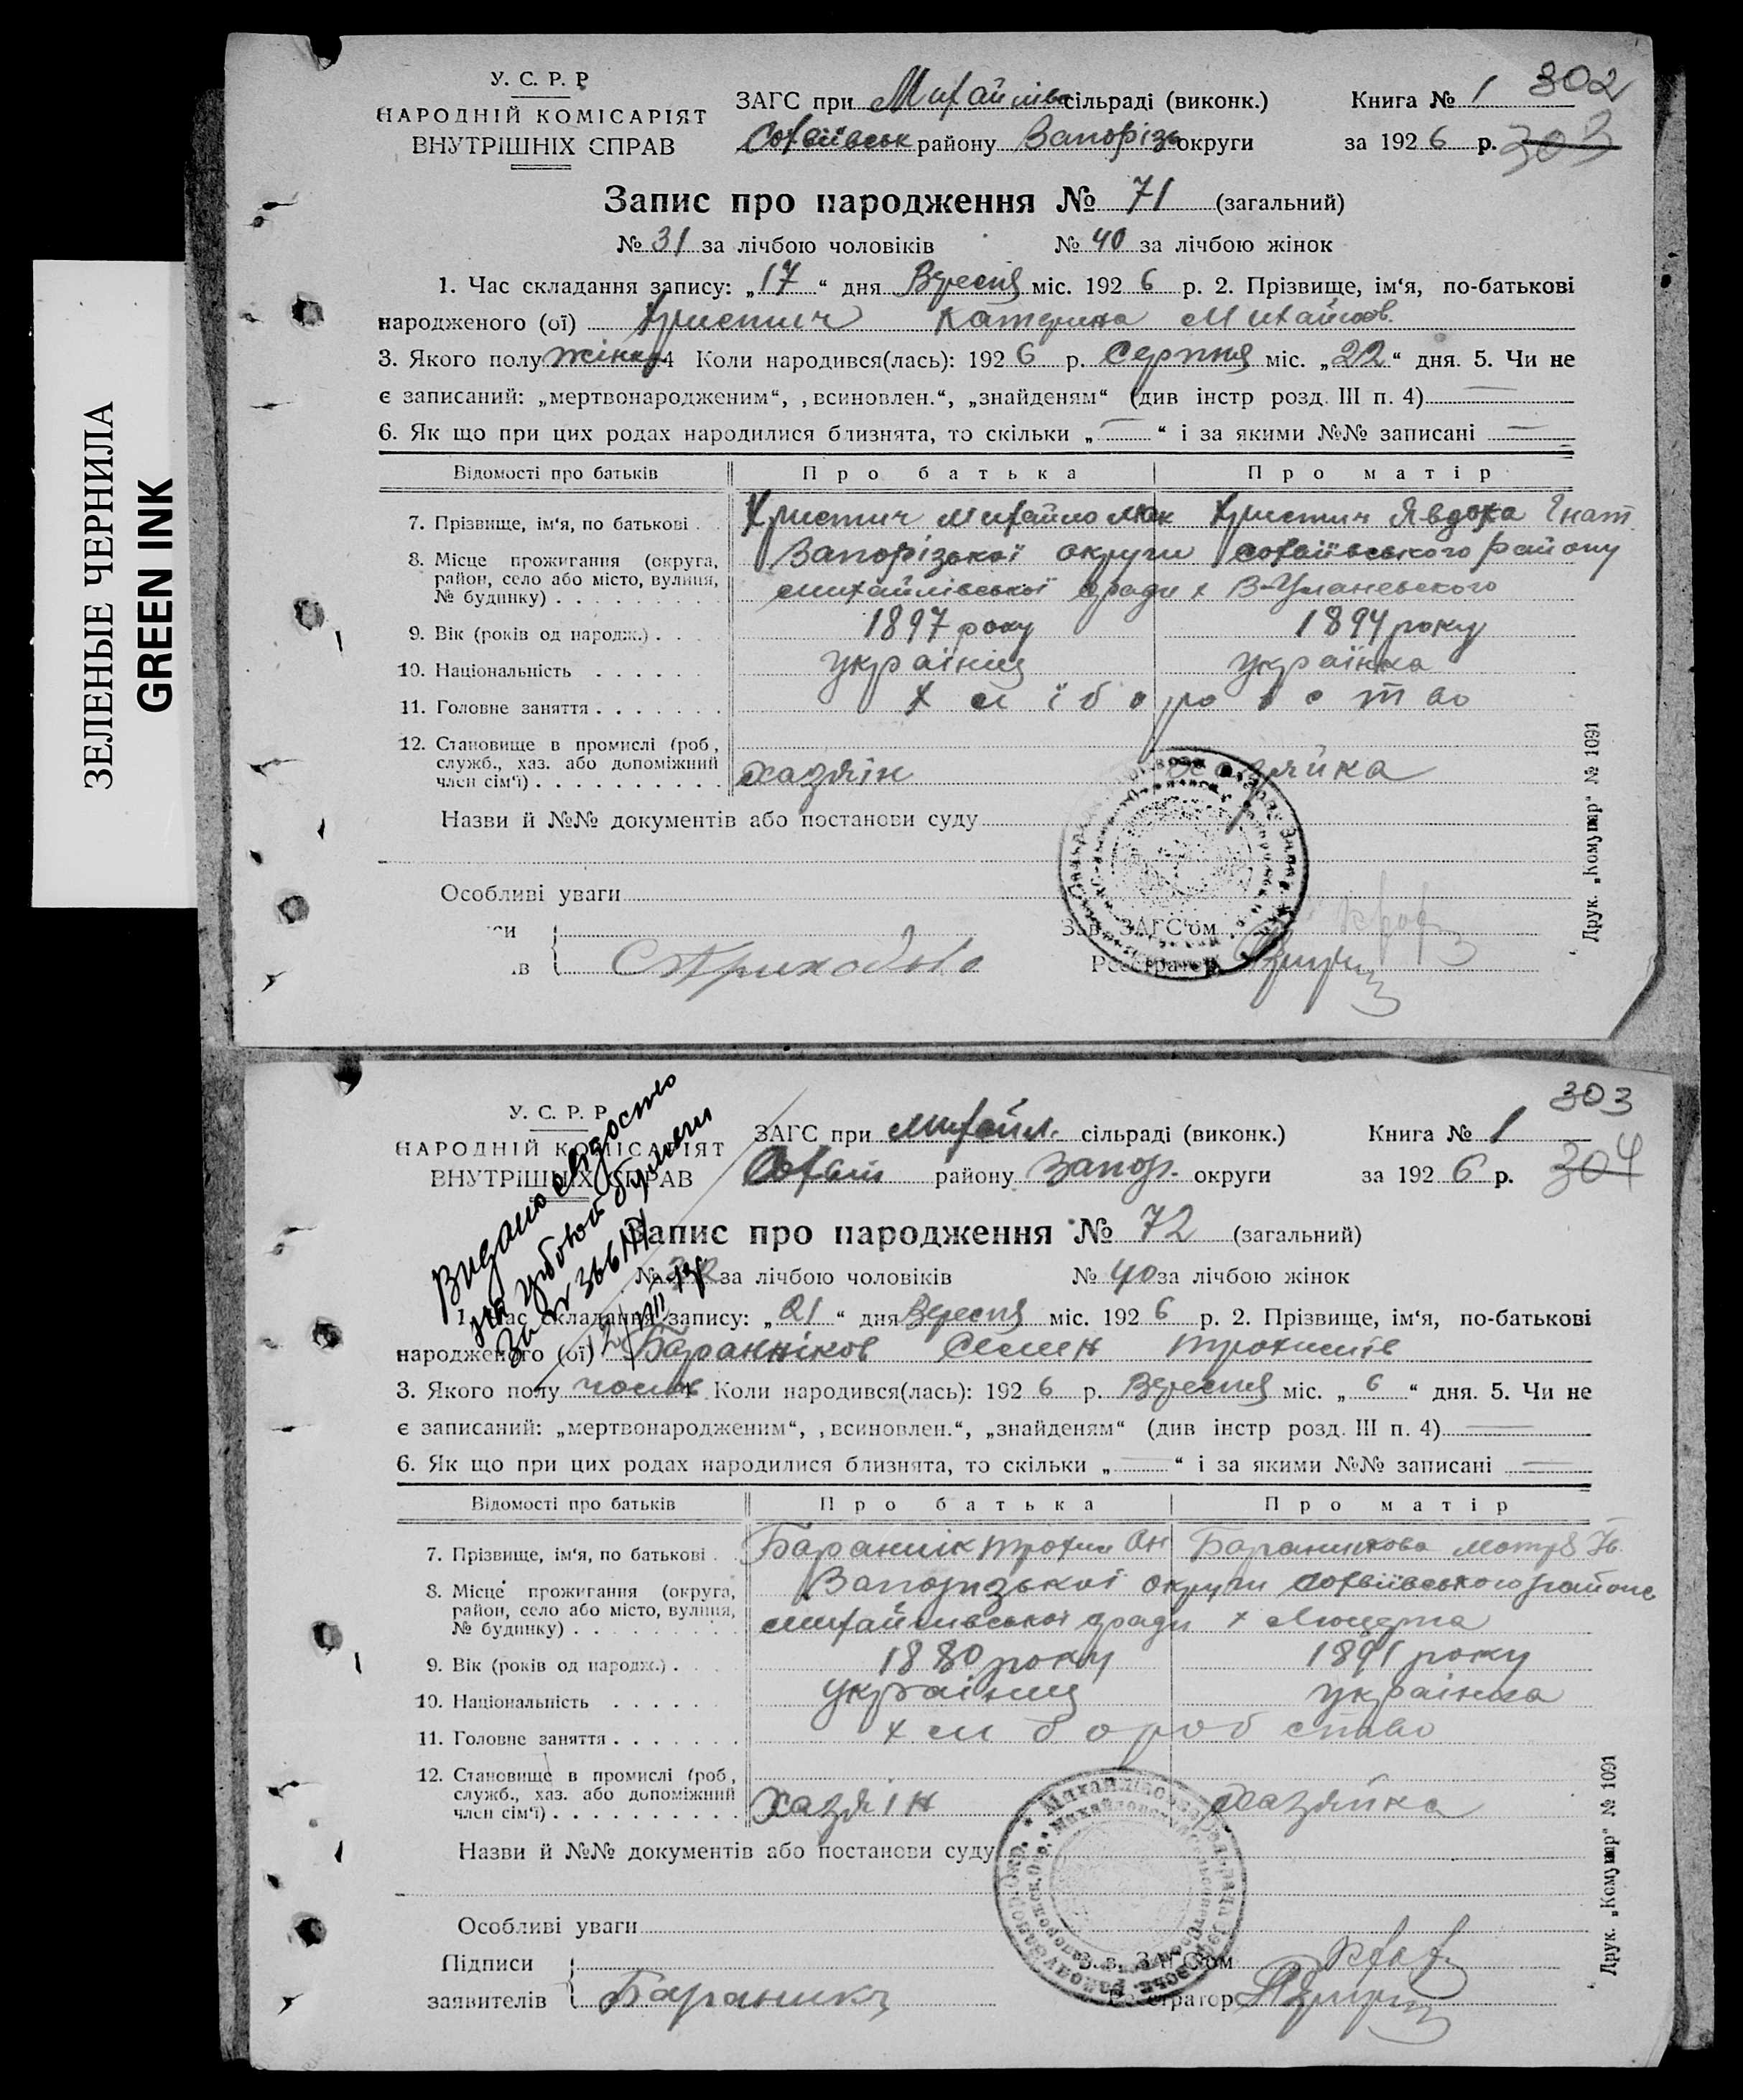 ЗЕЛЕНЫЕ ЧЕРНИЛА
GREEN INK
У. С. Р. Р.
НАРОДНІЙ КОМІСАРІЯТ
ВНУТРІШНІХ СПРАВ
ЗАГС при Михайлівс сільраді (виконк.)
Софіївськ району Запорізь округи
Книга № 1 302
за 1926 р. 303
Запис про народження № 71 (загальний)
№ 31 за лічбою чоловіків № 40 за лічбою жінок
1. Час складання запису: „17“ дня Вересня міс. 1926 р. 2. Прізвище, ім‘я, по-батькові
народженого (ої) Христич Катерина Михайлов.
3. Якого полу жіноч 4 Коли народився(лась): 1926 р. Серпня міс. „22“ дня. 5. Чи не
є записаний: „мертвонародженим“, „всиновлен.“, „знайденям“ (див інстр розд. III п. 4)
6. Як що при цих родах народилися близнята, то скільки „—“ і за якими №№ записані —
Відомості про батьків Про батька Про матір
7. Прізвище, ім‘я, по батькові Христич Михайло Христич Явдоха Гнат.
8. Місце прожигання (округа, Запорізької округи Софіївського району
район, село або місто, вулиця,
№ будинку) Михайлівської сради х В-Уманевського
9. Вік (років од народж.) 1897 року 1894 року
10. Національність українец українка
11. Головне заняття хліборобство
12. Становище в промислі (роб,
служб., хаз. або допоміжний
член сім‘ї) хазяін хазяйка
Назви й №№ документів або постанови суду
Особливі уваги
Зав. ЗАГС‘ом
Реєстратор
С Приходько
Друк. „Комунар“ № 1091
303
У. С. Р. Р.
НАРОДНІЙ КОМІСАРІЯТ
ВНУТРІШНІХ СПРАВ
Видано
за № 366
ЗАГС при Михайл. сільраді (виконк.)
Софіїв району Запор. округи
Книга № 1
за 1926 р. 304
Запис про народження № 72 (загальний)
№ 32 за лічбою чоловіків № 40 за лічбою жінок
1. Час складання запису: „21“ дня Вересня міс. 1926 р. 2. Прізвище, ім‘я, по-батькові
народженого (ої) Баранніков Семен Трохимів
3. Якого полу чолов. 4 Коли народився(лась): 1926 р. Вересня міс. „6“ дня. 5. Чи не
є записаний: „мертвонародженим“, „всиновлен.“, „знайденям“ (див інстр розд. III п. 4)
6. Як що при цих родах народилися близнята, то скільки „—“ і за якими №№ записані —
Відомості про батьків Про батька Про матір
7. Прізвище, ім‘я, по батькові Баранник Трохим Ан Баранникова Мотря Ів.
8. Місце прожигання (округа, Запоризької округи Софіївського району
район, село або місто, вулиця,
№ будинку) Михайлівської сради х Люцерна
9. Вік (років од народж.) 1880 року 1891 року
10. Національність українец українка
11. Головне заняття хлиборобство
12. Становище в промислі (роб,
служб., хаз. або допоміжний
член сім‘ї) Хазяін хазяйка
Назви й №№ документів або постанови суду
Особливі уваги
Підписи Зав. ЗАГС‘ом
заявителів Реєстратор
Друк. „Комунар“ № 1091